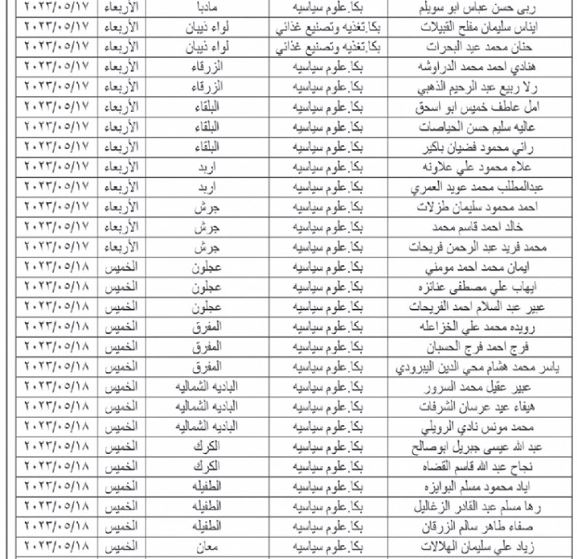 ربى حسن عباس ابو سويلم بكا.علوم سياسيه مادبا الأربعاء ٢٠٢٣/٠٥/١٧
ايناس سليمان مفلح القبيلات بكا.تغذيه وتصنيع غذائي لواء ذيبان الأربعاء ٢٠٢٣/٠٥/١٧
حنان محمد عبد البحرات بكا.تغذيه وتصنيع غذائي لواء ذيبان الأربعاء ٢٠٢٣/٠٥/١٧
هنادي احمد محمد الدراوشه بكا.علوم سياسيه الزرقاء الأربعاء ٢٠٢٣/٠٥/١٧
رلا ربيع عبد الرحيم الذهبي بكا.علوم سياسيه الزرقاء الأربعاء ٢٠٢٣/٠٥/١٧
امل عاطف خميس ابو اسحق بكا.علوم سياسيه البلقاء الأربعاء ٢٠٢٣/٠٥/١٧
عاليه سليم حسن الحياصات بكا.علوم سياسيه البلقاء الأربعاء ٢٠٢٣/٠٥/١٧
راني محمود فضيان باكير بكا.علوم سياسيه البلقاء الأربعاء ٢٠٢٣/٠٥/١٧
علاء محمود علي علاونه بكا.علوم سياسيه اربد الأربعاء ٢٠٢٣/٠٥/١٧
عبدالمطلب محمد عويد العمري بكا.علوم سياسيه اربد الأربعاء ٢٠٢٣/٠٥/١٧
احمد محمود سليمان طزلات بكا.علوم سياسيه جرش الأربعاء ٢٠٢٣/٠٥/١٧
خالد احمد قاسم محمد بكا.علوم سياسيه جرش الأربعاء ٢٠٢٣/٠٥/١٧
محمد فريد عبد الرحمن فريحات بكا.علوم سياسيه جرش الأربعاء ٢٠٢٣/٠٥/١٧
ايمان محمد احمد مومني بكا.علوم سياسيه عجلون الخميس ٢٠٢٣/٠٥/١٨
ايهاب علي مصطفى عنانزه بكا.علوم سياسيه عجلون الخميس ٢٠٢٣/٠٥/١٨
عبير عبد السلام احمد الفريحات بكا.علوم سياسيه عجلون الخميس ٢٠٢٣/٠٥/١٨
رويده محمد علي الخزاعله بكا.علوم سياسيه المفرق الخميس ٢٠٢٣/٠٥/١٨
فرج احمد فرج الحسبان بكا.علوم سياسيه المفرق الخميس ٢٠٢٣/٠٥/١٨
ياسر محمد هشام محي الدين اليبرودي بكا.علوم سياسيه المفرق الخميس ٢٠٢٣/٠٥/١٨
عبير عقيل محمد السرور بكا.علوم سياسيه الباديه الشماليه الخميس ٢٠٢٣/٠٥/١٨
هيفاء عيد عرسان الشرفات بكا.علوم سياسيه الباديه الشماليه الخميس ٢٠٢٣/٠٥/١٨
محمد مونس نادي الرويلي بكا.علوم سياسيه الباديه الشماليه الخميس ٢٠٢٣/٠٥/١٨
عبد الله عيسى جبريل ابوصالح بكا.علوم سياسيه الكرك الخميس ٢٠٢٣/٠٥/١٨
نجاح عبد الله قاسم القضاه بكا.علوم سياسيه الكرك الخميس ٢٠٢٣/٠٥/١٨
اياد محمود مسلم البوايزه بكا.علوم سياسيه الطفيله الخميس ٢٠٢٣/٠٥/١٨
رها مسلم عبد القادر الزغاليل بكا.علوم سياسيه الطفيله الخميس ٢٠٢٣/٠٥/١٨
صفاء طاهر سالم الزرقان بكا.علوم سياسيه الطفيله الخميس ٢٠٢٣/٠٥/١٨
زياد علي سليمان الهلالات بكا.علوم سياسيه معان الخميس ٢٠٢٣/٠٥/١٨